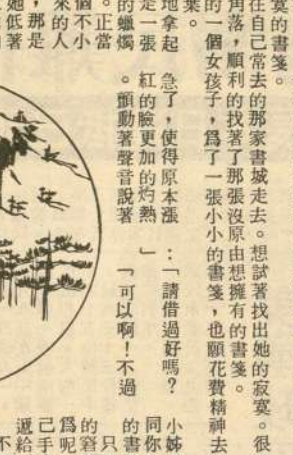 寞的書箋。
在自己常去的那家書城走去。想試著找出她的寂寞。很
角落，順利的找著了那張沒原由想擁有的書箋。
的一個女孩子，爲了一張小小的書箋，也願花費精神去
葉。
地拿起
是一張
的蠟燭
。正當
個不小
來的人
，那是
她低著
急了，使得原本漲
紅的臉更加的灼熱
。顫動著聲音說著
：「請借過好嗎？
」
「可以啊！不過
小姊
同你
的書
只
的窘
爲呢
己手
遞給
不